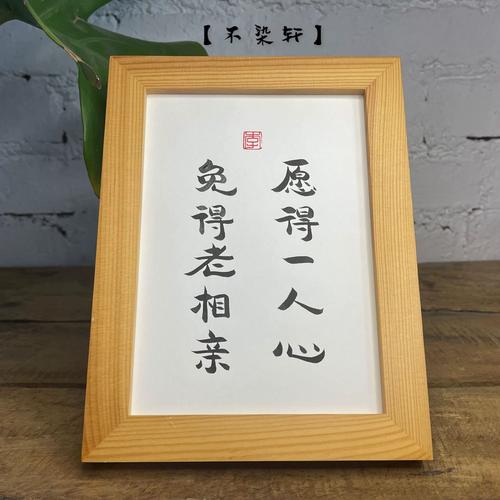 【不染轩】
愿得一人心
免得老相亲